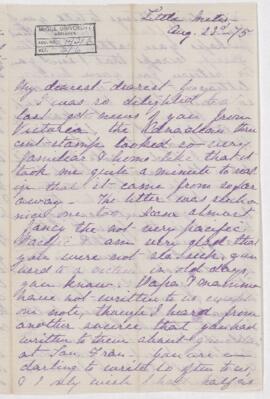 Little Metis
Aug. 23rd /75
McGILL UNIVERSITY
ACC. NO.
REF.
My dearest dearest
I was so delighted to
last get news of you from
Victoria, the Canadian three
cent stamp looked so very
familiar & home like that it
took me quite a minute to take
in that it came from so far
away. The letter was such a
nice one too, soon almost
fancy the not very pacific
Pacific. I am very glad that
you were not sea sick, you
used to a victim in old days,
you know. Papa & mamma
have not written to us except
one note, though I heard from
another source that you had
written to them about
at San Fran. you are a
darling to write so often to us,
& I only wish I had half as